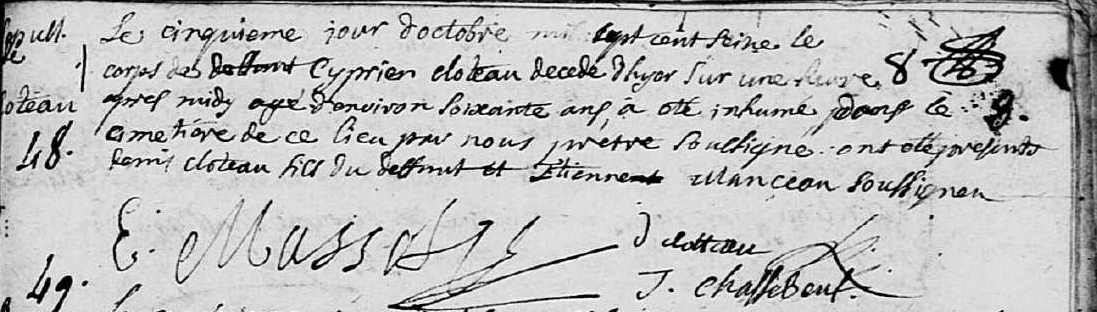 sepult.
de
cloteau
48.
Le cinquieme jour d'octobre mil sept cent seize le
corps de deffunt Cyprien cloteau decedé d'hyer sur une heure 8
apres midy agé d'environ soixante ans, a eté inhumé dans le 9.
cimetiere de ce lieu par nous prètre soussigné. ont eté presents
cloteau fils du deffunt et Etienne Manceau soussignez
E. Masse
J cloteau
J. Chassebeuf.
49.